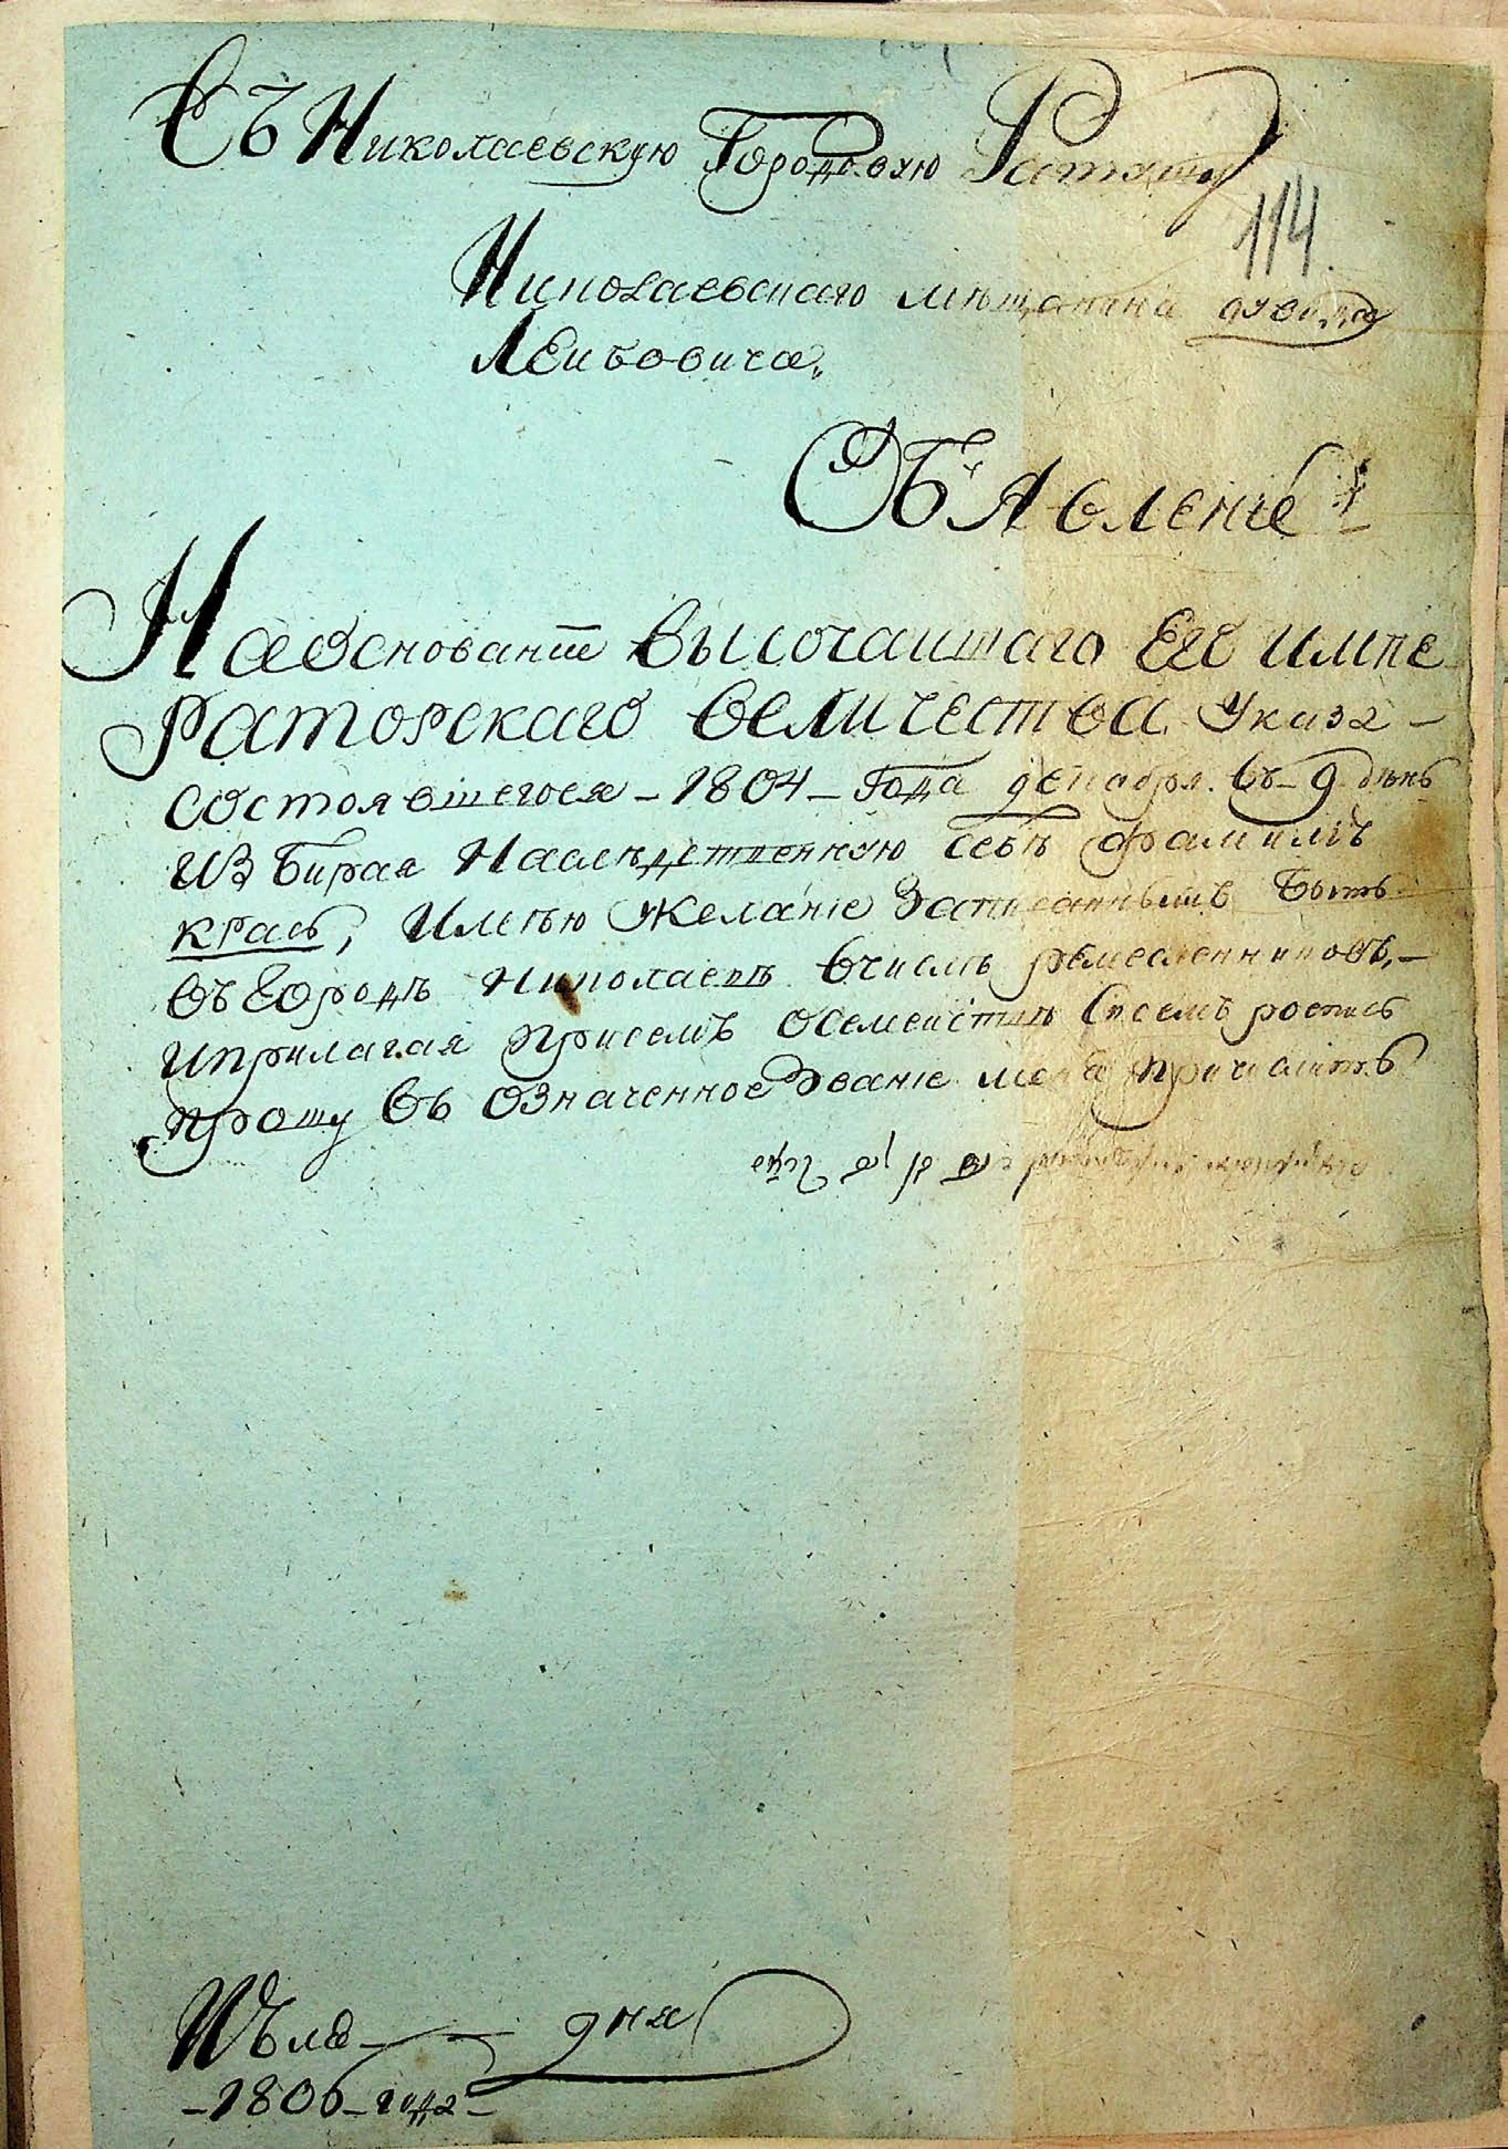 Съ Николаевскую Городовую Ратушу
114
Николаевскаго мѣщанина
Леибовича.
Объявленіе
На Основаніи Высочаишаго Его Импе
раторскаго Величества Указа
состоявшегося - 1804 - года декабря. въ - 9 день
избирая Наслѣдственную себѣ фамилію
Крась, Имѣю Желаніе Записаннымъ Быть
въ Городѣ Николаевѣ вчислѣ ремесленниковъ, -
иприлагая присемъ осемеиствѣ своемъ роспись
прошу въ Означенное Званіе меня причислить
Июля — дня
- 1806 - года -